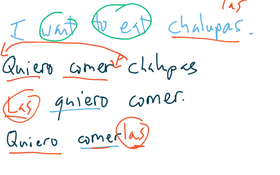 las
I want to eat chalupas.
Quiero comer chalupas
Las quiero comer.
Quiero comerlas